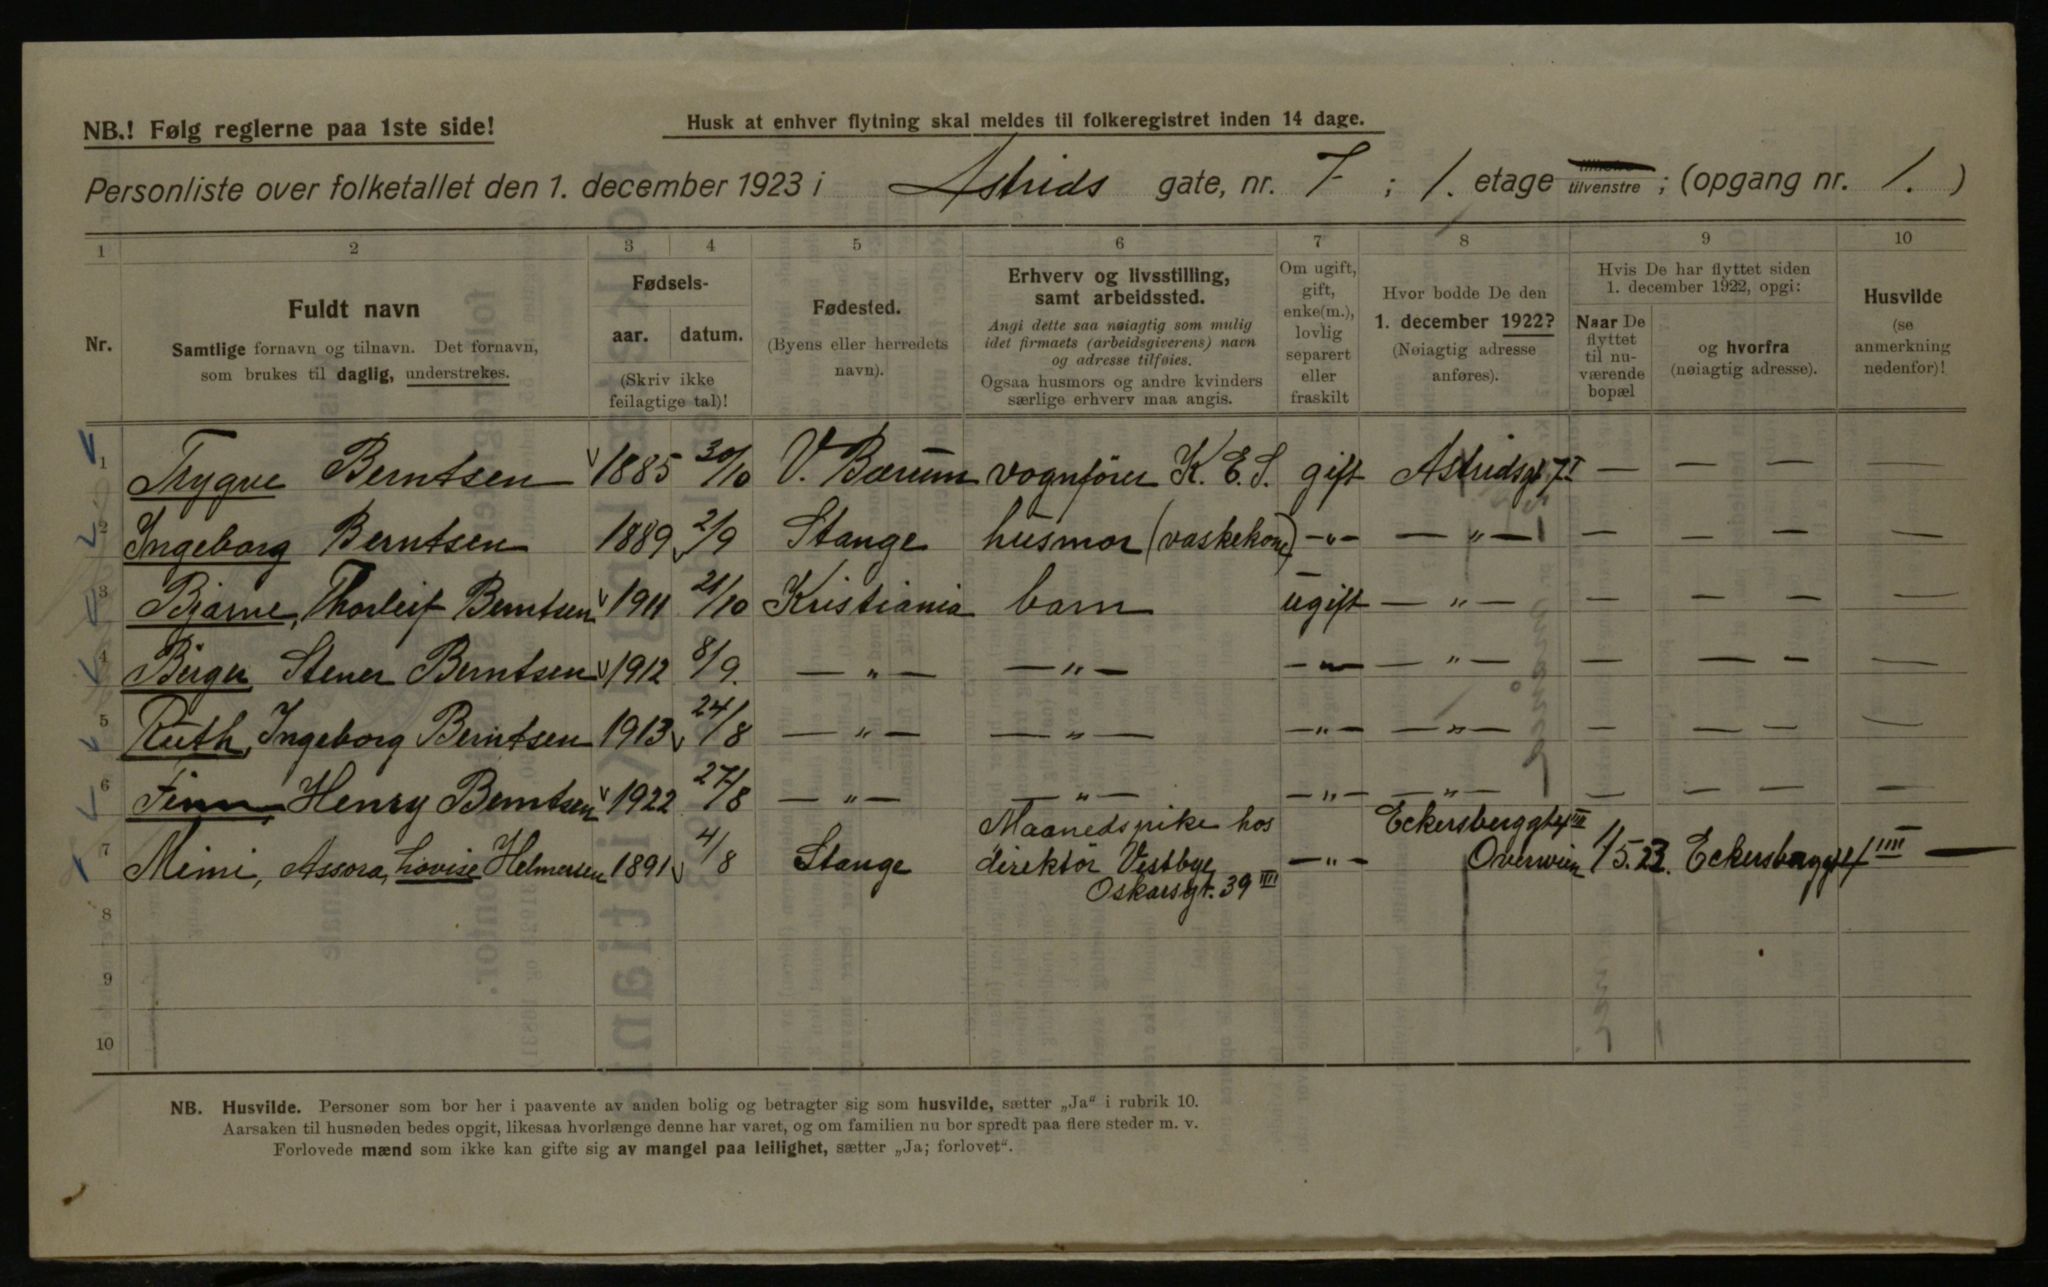 NB.! Følg reglerne paa 1ste side!
Husk at enhver flytning skal meldes til folkeregistret inden 14 dage.
Personliste over folketallet den 1. december 1923 i Astrids gate, nr. 7 ; 1. etage tilvenstre ; (opgang nr. 1. )
1 2 3 4 5 6 7 8 9 10
Nr.
Fuldt navn
Samtlige fornavn og tilnavn. Det fornavn,
som brukes til daglig, understrekes.
Fødsels-
aar. datum.
(Skriv ikke
feilagtige tal)!
Fødested.
(Byens eller herredets
navn).
Erhverv og livsstilling,
samt arbeidssted.
Angi dette saa nøiagtig som mulig
idet firmaets (arbeidsgiverens) navn
og adresse tilføies.
Ogsaa husmors og andre kvinders
særlige erhverv maa angis.
Om ugift,
gift,
enke(m.),
lovlig
separert
eller
fraskilt
Hvor bodde De den
1. december 1922?
(Nøiagtig adresse
anføres).
Hvis De har flyttet siden
1. december 1922, opgi:
Naar De
flyttet
til nu-
værende
bopæl
og hvorfra
(nøiagtig adresse).
Husvilde
(se
anmerkning
nedenfor)!
1 Trygve Berntsen 1885 30/10 V. Bærum vognfører K. E. S. gift Astridsgt 7 I — — — —
2 Ingeborg Berntsen 1889 2/9 Stange husmor (vaskekone) —„— — „ — — — — —
3 Bjarne, Thorleif Berntsen 1911 21/10 Kristiania barn ugift — „ — — — — —
4 Birger Stener Berntsen 1912 8/9. — „ — — „ — — „ — — „ — — — — —
5 Ruth, Ingeborg Berntsen 1913 24/8 — „ — — „ — — „ — — „ — — — — —
6 Finn, Henry Berntsen 1922 27/8 — „ — — „ — — „ — — „ — — — — —
7 Mimi, Assora, Lovise Helmersen 1891 4/8 Stange Maanedspike hos
direktør Vestbye
Oskarsgt. 39 III — „ — Eckersberggt III
1/5.23. —
8
9
10
NB. Husvilde. Personer som bor her i paavente av anden bolig og betragter sig som husvilde, sætter „Ja“ i rubrik 10.
Aarsaken til husnøden bedes opgit, likesaa hvorlænge denne har varet, og om familien nu bor spredt paa flere steder m. v.
Forlovede mænd som ikke kan gifte sig av mangel paa leilighet, sætter „Ja; forlovet“.